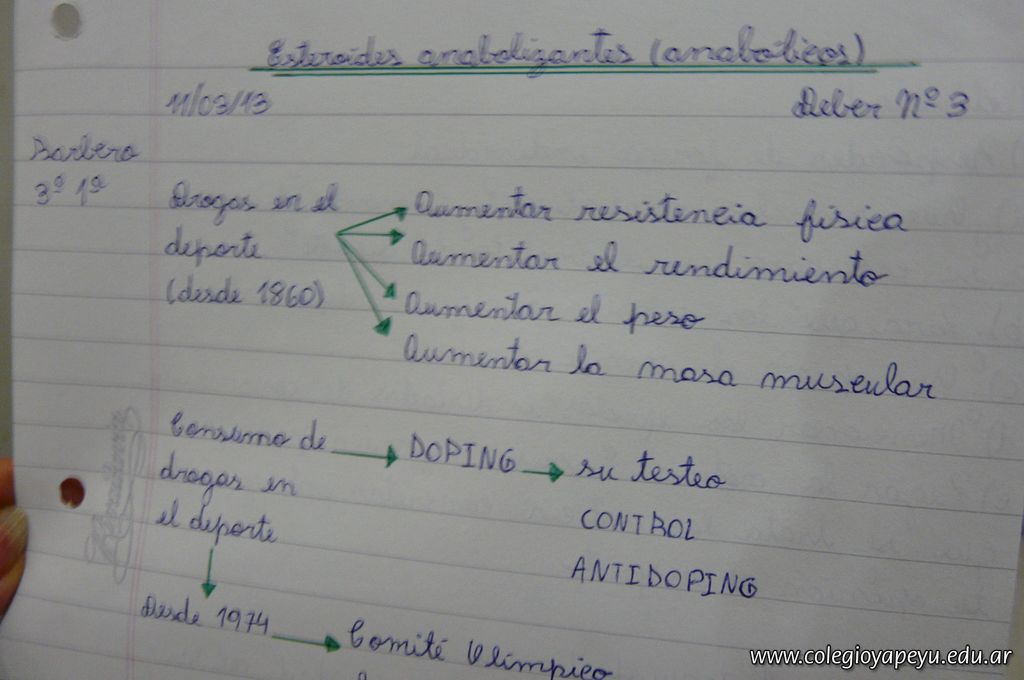 Esteroides anabolizantes (anabólicos)
11/03/13 Deber Nº 3
Barbero
3º 1ª
Drogas en el
deporte
(desde 1860)
Aumentar resistencia física
Aumentar el rendimiento
Aumentar el peso
Aumentar la masa muscular
Consumo de
drogas en
el deporte
DOPING
su testeo
CONTROL
ANTIDOPING
Desde 1974
Comité Olímpico
Rivadavia
www.colegioyapeyu.edu.ar